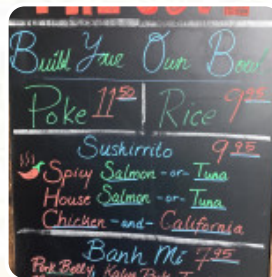 Build Your Own Bowl
Poke 11⁵⁰ Rice 9⁹⁵
Sushirrito 9⁹⁵
Spicy Salmon -or- Tuna
House Salmon -or- Tuna
Chicken -and- California
Banh Mi 7⁹⁵
Pork Belly, Kalua Pork